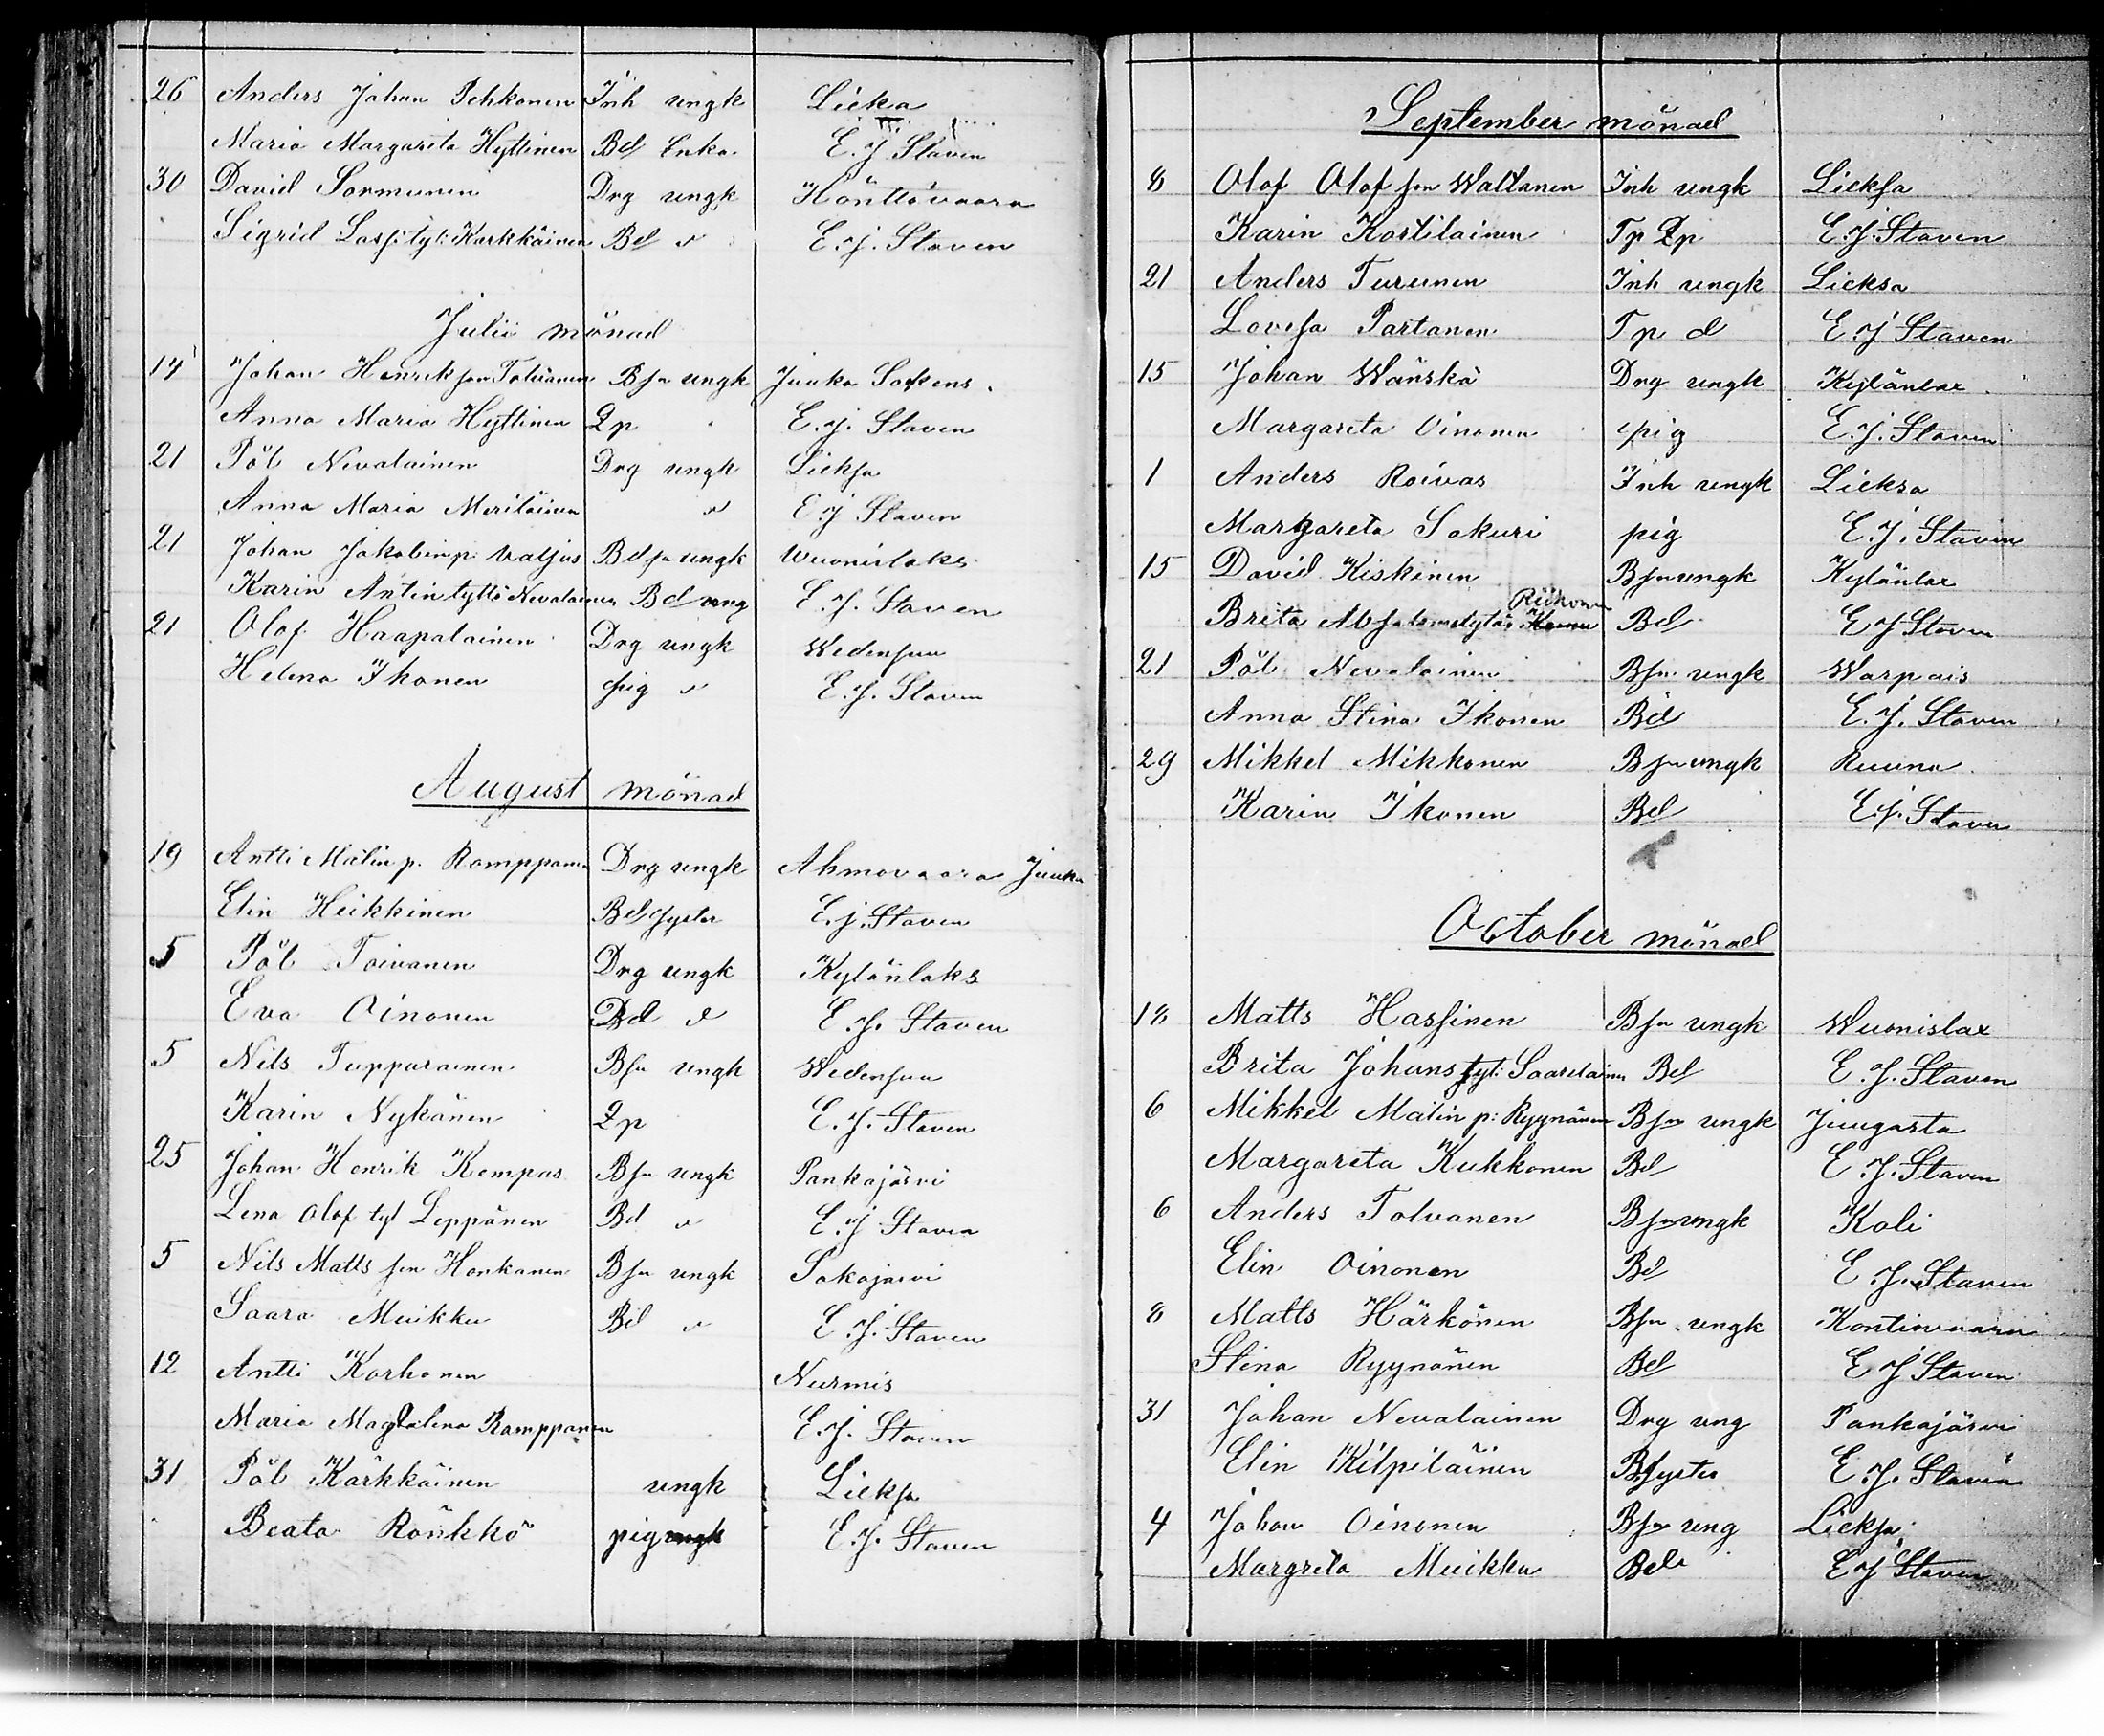 26 Anders Johan Pehkonen Inh ungk Lieksa
Maria Margareta Hyttinen Bd Enka E. J. Staven
30 David Sormunen Drg ungk Höntövaara
Sigrid Lassityt: Karkkäinen Bd v E. J. Staven
Julii mönad
14 Johan Henrikson Tolvanen Bsn ungk Juuka Sokens
Anna Maria Hyttinen Qp E. J. Staven
21 Pöl Nevalainen Drg ungk Lieksa
Anna Maria Meriläinen v E J Staven
21 Johan Jakobinp: Valjus Bdsn ungk Wuonislaks
Karin Antintyttö Nevalainen Bd ung E. J. Staven
21 Olof Haapalainen Drg ungk Wedensuu
Helena Ikonen pig v E. J. Staven
August mönad
19 Antti Matinp. Romppanen Drg ungk Ahmovaara Juuka
Elin Heikkinen Bd syster E. J. Staven
5 Pöl Toivanen Drg ungk Kylänlaks
Eva Oinonen Bd d E. J. Staven
5 Nils Tupparainen Bsn ungk Wedensuu
Karin Nykänen Qp E. J. Staven
25 Johan Henrik Kempas Bsn ungk Pankajärvi
Lena Olof tyt Leppänen Bd v E. J Staven
5 Nils Matts son Honkanen Bsn ungk Sokojärvi
Saara Muikku Bd v E. J. Staven
12 Antti Korhonen Nurmis
Maria Magdalena Romppanen E. J. Staven
31 Pöl Kärkkäinen ungk Lieksa
Beata Rönkkö pig ungk E. J. Staven
September mönad
8 Olof Olof son Waltanen Inh ungk Lieksa
Karin Kortilainen Tp Qp E. J. Staven
21 Anders Turunen Inh ungk Lieksa
Lovisa Partanen Tp d E J Staven
15 Johan Wänskä Drg ungk Kylänlax
Margareta Oinonen pig E. J. Staven
1 Anders Roivas Inh ungk Lieksa
Margareta Sakuri pig E. J. Staven
15 David Kiskinen Bsn ungk Kylänlax
Riikonen
Brita Absalomstytär Bd E J Staven
21 Pöl Nevalainen Bsn ungk Warpais
Anna Stina Ikonen Bd E. J. Staven
29 Mikkel Mikkonen Bsn ungk Ruuna
Karin Ikonen Bd E. J. Staven
October mönad
18 Matts Hassinen Bsn ungk Wuonislax
Brita Johans tyt: Saarelainen Bd E. J. Staven
6 Mikkel Matin p: Ryynänen Bsn ungk Jungasta
Margareta Kukkonen Bd E. J. Staven
6 Anders Tolvanen Bsn ungk Koli
Elin Oinonen Bd E. J. Staven
8 Matts Härkönen Bsn ungk Kontiovaara
Stina Ryynänen Bd E. J Staven
31 Johan Nevalainen Drg ung Pankajärvi
Elin Kilpiläinen Bsyster E. J. Staven
4 Johan Oinonen Bsn ung Lieksa
Margreta Muikku Bd E J Staven